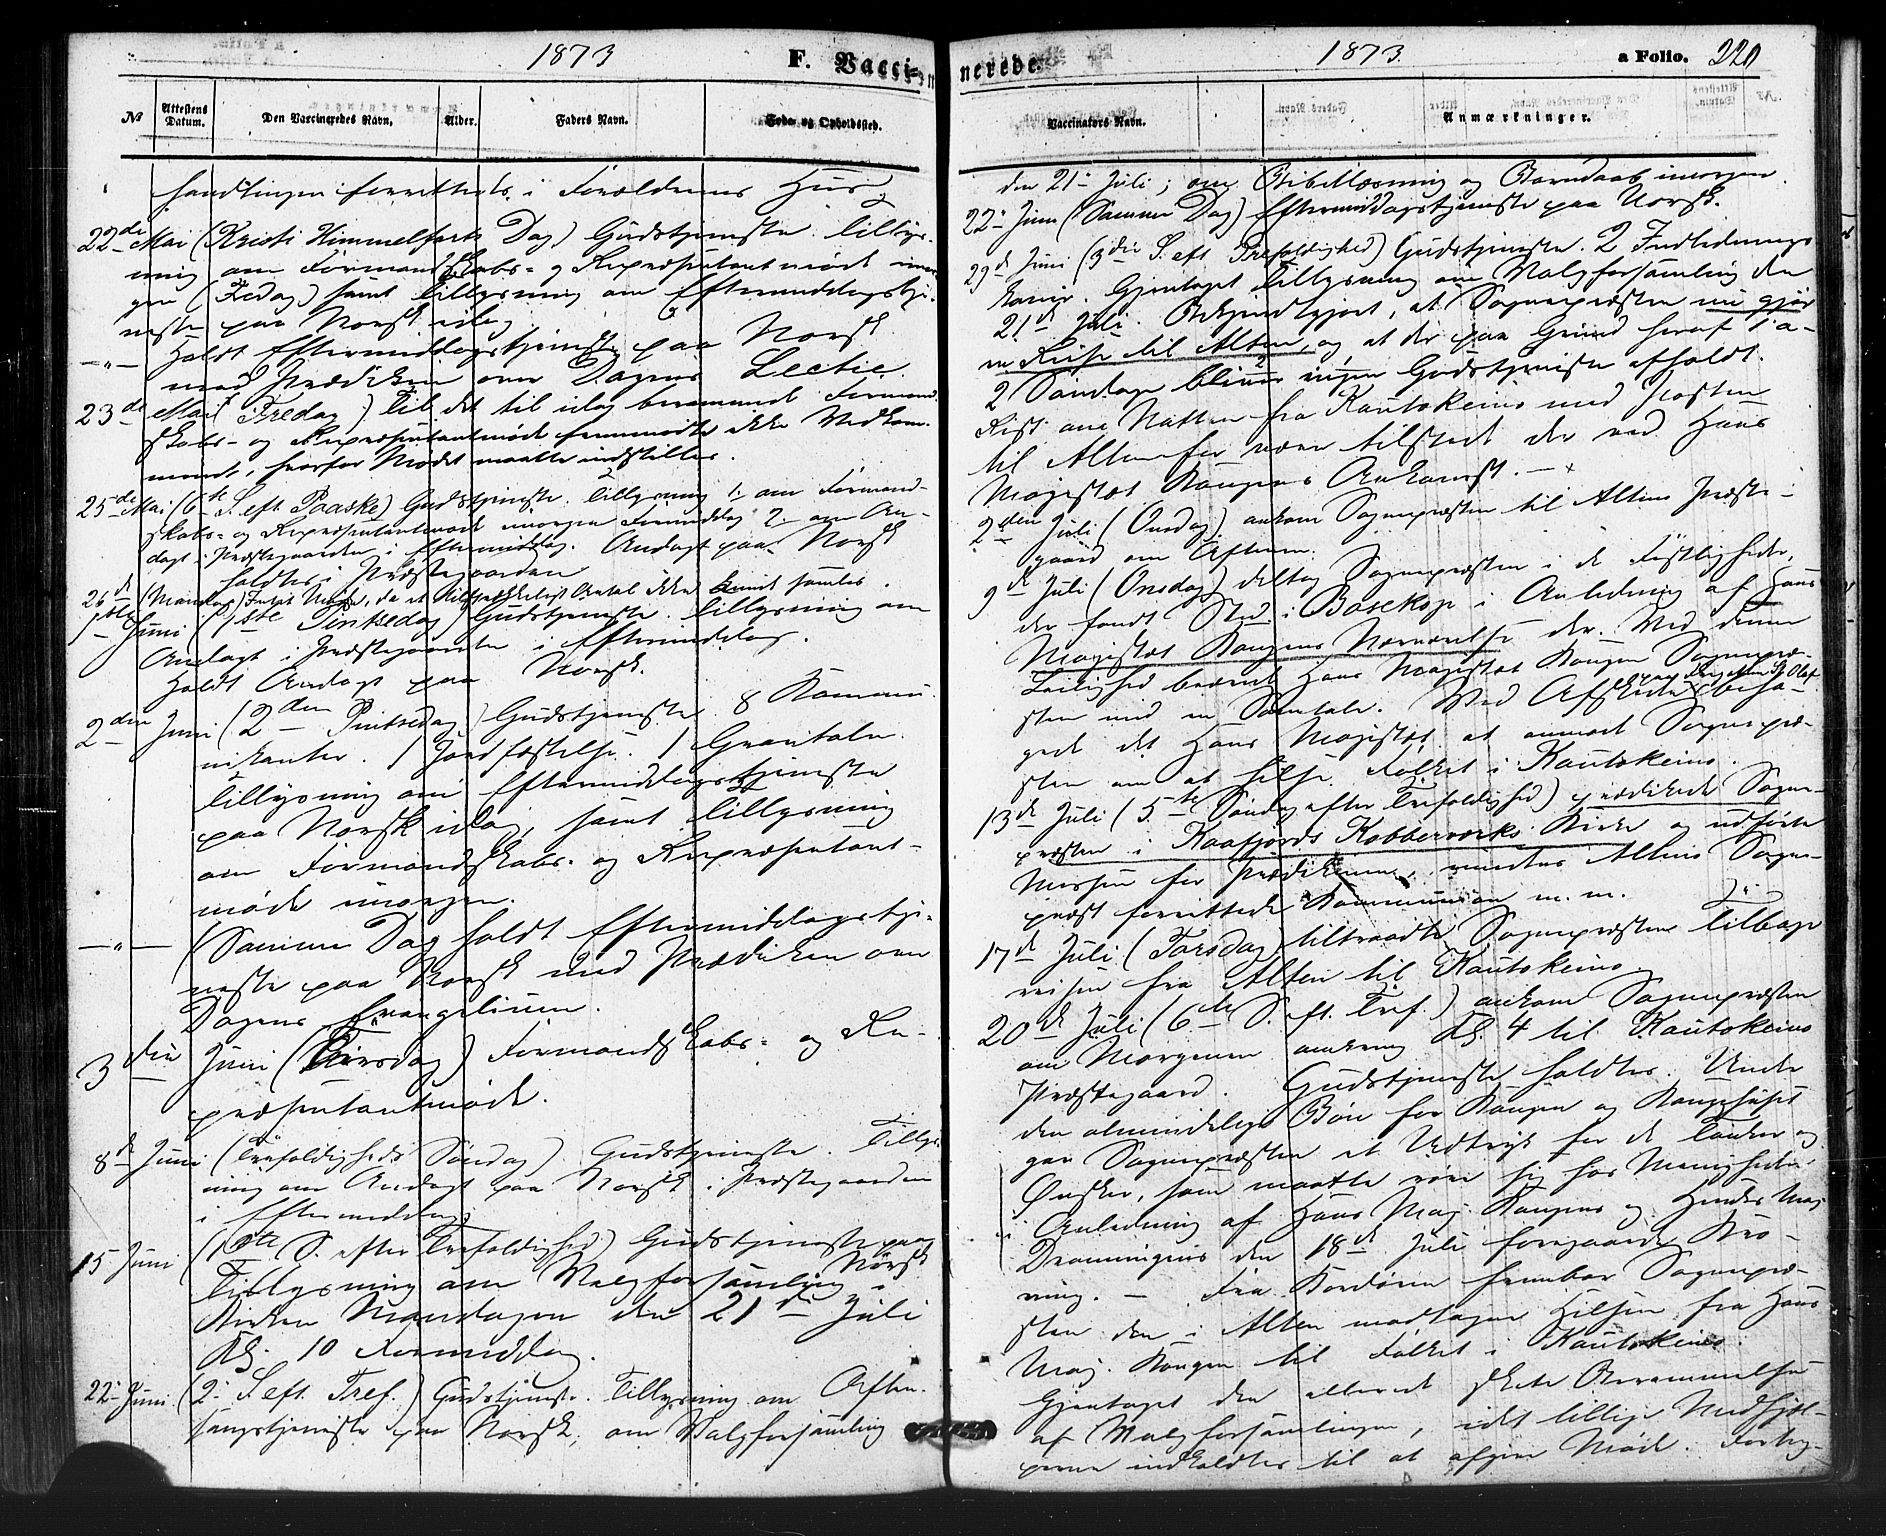 1873 F. Vacci-
№ Attestens Datum. Den Vaccineredes Navn. Alder. Faders Navn. Føde- og Opholdssted.
handlingen forrettedes i Forældrenes Hus
22de Mai (Kristi Himmelfarts Dag) Gudstjeneste. Tillys-
ning om Formandskabs- og Repræsentantmøde imor-
gen (Fredag) samt Tillysning om Eftermiddagstje-
neste paa Norsk idag
—"— Holdt Eftermiddagstjeneste paa Norsk
med Prædiken over Dagens Lectie.
23de Mai (Fredag) Til det til idag berammede Formand-
skabs- og Repræsentantmøde fremmødte ikke Vedkom-
mende, hvorfor Mødet maatte indstilles.
25de Mai (6te S. eft. Paaske) Gudstjeneste. Tillysning 1. om Formand-
skabs- og Repræsentantmøde imorgen Formiddag 2. om An-
dagt i Præstegaarden i Eftermiddag. Andagt paa Norsk
holdtes i Præstegaarden
26de (Mandag) Intet Møde, da et tilstrækkeligt Antal ikke kunde samles.
1ste Juni (1ste Pintsedag) Gudstjeneste. Tillysning om
Andagt i Præstegaarden i Eftermiddag.
Holdt Andagt paa Norsk.
2den Juni (2den Pintsedag) Gudstjeneste 8 Kommu-
nikanter. 1 Jordfæstelse. 1 Gravtale.
Tillysning om Eftermiddagstjeneste
paa Norsk idag, samt Tillysning
om Formandskabs- og Repræsentant-
møde imorgen.
—"— (Samme Dag) holdt Eftermiddagstje-
neste paa Norsk med Prædiken over
Dagens Evangelium.
3die Juni (Tirsdag) Formandskabs- og Re-
præsentantmøde.
8de Juni (Trefoldigheds Søndag). Gudstjeneste. Tillys-
ning om Andagt paa Norsk i Præstegaarden
i Eftermiddag.
15 Juni (1ste S. efter Trefoldighed) Gudstjeneste paa Norsk
Tillysning om Valgforsamling i
Kirken Mandagen den 21de Juli
Kl. 10 Formiddag.
22. Juni (2. S. eft. Tref.) Gudstjeneste. Tillysning om Aften-
sangstjeneste paa Norsk, om Valgforsamling
nerede. 1873. a Folio. 220
Vaccinators Navn. Anmærkninger.
den 21. Juli; om Bibellæsning og Barndaab imorgen.
22. Juni (Samme Dag) Eftermiddagstjeneste paa Norsk.
29de Juni (3die S. eft. Trefoldighed) Gudstjeneste. 2 Indlednings
koner. Gjentaget Tillysning om Valgforsamling den
21de Juli. Bekjendtgjort, at Sognepræsten nu gjør
en Reise til Alten, og at der paa Grund heraf 1 a-
2 Søndage bliver ingen Gudstjeneste afholdt.
Reist om Natten fra Kautokeino med Posten
til Alten for være tilstede der ved Hans
Majestæt Kongens Ankomst. —
2den Juli (Onsdag) ankom Sognepræsten til Altens Præste-
gaard om Aftenen.
9de Juli (Onsdag) deltog Sognepræsten i de Festligheder,
der fandt Sted i Bosekop i Anledning af Hans
Majestæt Kongens Nærværelse der. Ved denne
Leilighed beærede Hans Majestæt Kongen Sognepræ-
sten med en Samtale. Ved Afskeden beha-
gede det Hans Majestæt at anmode Sognepræ-
sten om at hilse Folket i Kautokeino.
13de Juli (5te Søndag efter Trefoldighed) prædikede Sogne-
præsten i Kaafjords Kobberværks Kirke og udførte
Messen før Prædikenen, medens Altens Sogne-
præst forrettede Kommunion m. m.
17de Juli (Torsdag) tiltraadte Sognepræsten Tilbage
reisen fra Alten til Kautokeino
20de Juli (6te S. eft. Tref.) ankom Sognepræsten
om Morgenen omkring Kl. 4 til Kautokeino
Præstegaard. Gudstjeneste holdtes. Under
den almindelige Bøn for Kongen og Kongehuset
gav Sognepræsten et Udtryk for de Tanker og
Ønsker, som maatte røre sig hos Menigheden
i Anledning af Hans Maj. Kongens og Hendes Maj.
Dronningens den 18de Juli foregaaede Kro-
ning. — Fra Kordøren frembar Sognepræ-
sten den i Alten modtagne Hilsen fra Hans
Maj. Kongen til Folket i Kautokeino.
Gjentaget den allerede skete Berammelse
af Valgforsamlingen, idet tillige Medhjæl-
perne indkaldtes til at afgive Møde.